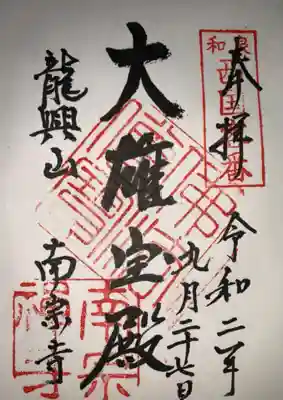 奉拝
令和二年
九月二十七日
大雄宝殿
龍興山
南宗寺
和泉
西国
南宗
禅寺